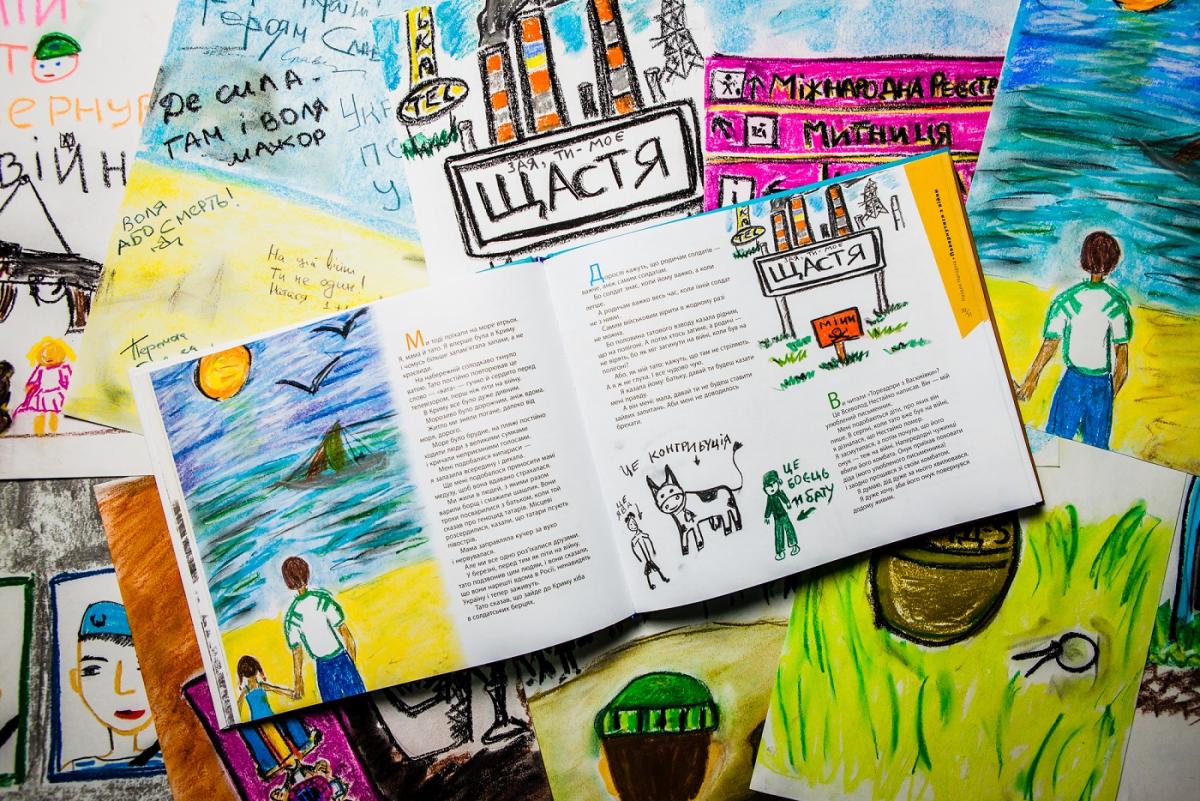 ГЕРОЯМ СЛА
ДЕ СИЛА -
ТАМ І ВОЛЯ
МАЖОР
ВОЛЯ
АБО СМЕРТЬ!
На цій війні
Ти не один!
ЕРНУВ
ВІЙН
ТЕС
ЗАЯ, ТИ - МОЄ
ЩАСТЯ
МІЖНАРОДНА РЕЄСТР
МИТНИЦЯ
Ми тоді поїхали на море втрьох.
Я, мама й тато. Я вперше була в Криму
На набережній солодкаво тхнуло
ватою. Тато постійно повторював це
слово — «вата» — гучно й сердито перед
телевізором, перш ніж піти на війну.
В Криму все було дуже дивним.
Морозиво було дорожчим, аніж вдома.
Житло ми зняли погане, далеко від
моря, дороге.
Море було брудне, на пляжі постійно
ходили люди з великими сумками
і кричали неприємними голосами.
Мені подобалися кипариси —
я залазила всередину і дихала.
Ще мені подобалося приносити мамі
медузу, щоб вона вдавано страхалася.
варили борщ і смажили шашлик. Вони
трохи посварилися з батьком, коли той
сказав про геноцид татарів. Місцеві
розсердилися, казали, що татари псують
півострів.
Мама заправляла кучер за вухо
і нервувалася.
Але ми все одно роз'їхалися друзями.
У березні, перед тим як піти на війну,
тато подзвонив цим людям, і вони сказали,
що вони нарешті вдома в Росії, ненавидять
Україну і тепер заживуть.
Тато сказав, що зайде до Криму хіба
в солдатських берцях.
Дорослі кажуть, що родичам солдатів —
важче, аніж самим солдатам.
Бо солдат знає, коли йому важко, а коли
легше.
А родичам важко весь час, коли їхній солдат
не з ними.
Самим військовим вірити в жодному разі
не можна!
Бо половина татового взводу казала рідним,
що на полігоні. А потім хтось загине, а родичі —
не вірять, бо як міг загинути на війні, коли був на
полігоні?
Або, як мій тато: кажуть, що там не стріляють.
А я ж не глуха. І все чудово чую.
Я казала йому: батьку, давай ти будеш казати
мені правду.
А він мені: мала, давай ти не будеш ставити
зайвих запитань. Аби мені не доводилось
брехати.
ТЕС
ЗАЯ, ТИ - МОЄ
ЩАСТЯ
МІНИ
ЦЕ КОНТРИБУЦІЯ
ЦЕ
Я
ЦЕ
БОЄЦЬ
11 БАТУ
Ви читали «Тореадори з Васюківки»?
Це Всеволод Нестайко написав. Він — мій
улюблений письменник.
Мені подобаються діти, про яких він
пише. В серпні, коли тато вже був на війні,
я дізналася, що Нестайко помер.
Я засмутилася. А потім почула, що його
онук — теж на війні. Напередодні чужинці
вбили його комбата. Онук приїхав поховати
діда (мого улюбленого письменника)
і заодно прощався зі своїм комбатом.
Я думаю, дід дуже за нього хвилювався.
Я дуже хочу, аби його онук повернувся
додому живим.